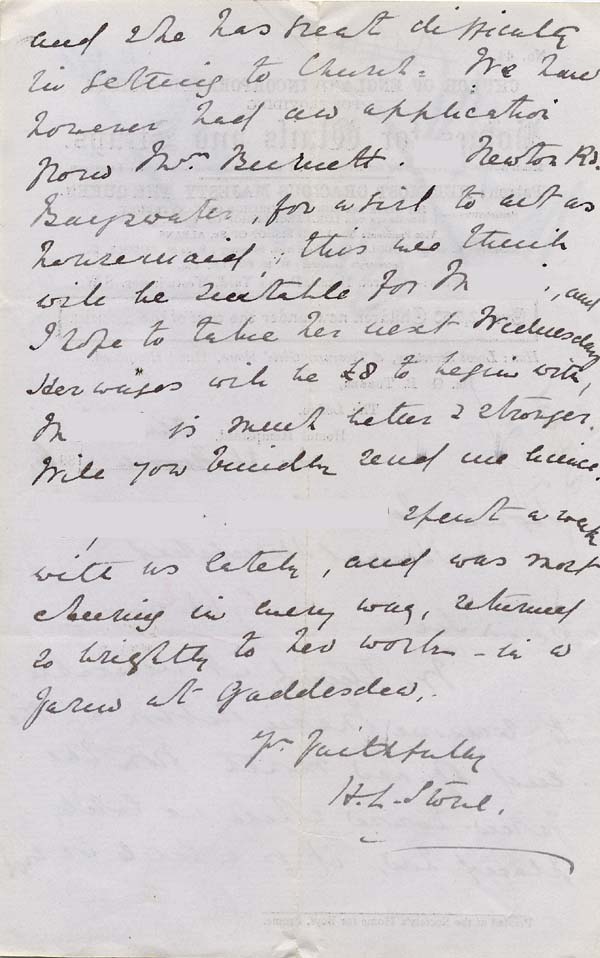 and she has great difficulty
in getting to Church. We have
however had an application
from Mrs. Burnett. Newton Rd.
Bayswater, for a girl to act as
housemaid, this we think
will be suitable for M , and
I hope to take her next Wednesday
Her wages will be £8 to begin with,
M is much better & stronger.
Will you kindly send me licence.
spent a week
with us lately, and was most
cheering in every way, returned
so brightly to her work - in a
farm at Gaddesden.
Yr. Faithfully
H. L. Stone.